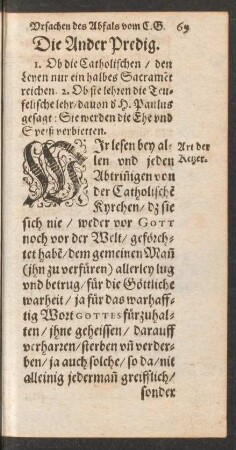 Vrsachen des Abfals vom C.G. 69
Die Ander Predig.
1. Ob die Catholischen / den
Leyen nur ein halbes Sacramēt
reichen. 2. Ob sie lehren die Teu-
felische lehr / dauon d' H. Paulus
gesagt : Sie werden die Ehe vnd
Speiß verbietten.
WIr lesen bey al-
len vnd jeden
Abtriñigen von
der Catholischē
Kyrchen / dz sie
sich nie / weder vor GOTT
noch vor der Welt / geförch-
tet habē / dem gemeinen Mañ
(jhn zu verfüren) allerley lug
vnd betrug / für die Göttliche
warheit / ja für das warhaff-
tig Wort GOTTES fürzuhal-
ten / jhne geheissen / darauff
verharzen / sterben vñ verder-
ben / ja auch solche / so da / nit
alleinig jedermañ greifflich /
sonder
Art der
Ketzer.